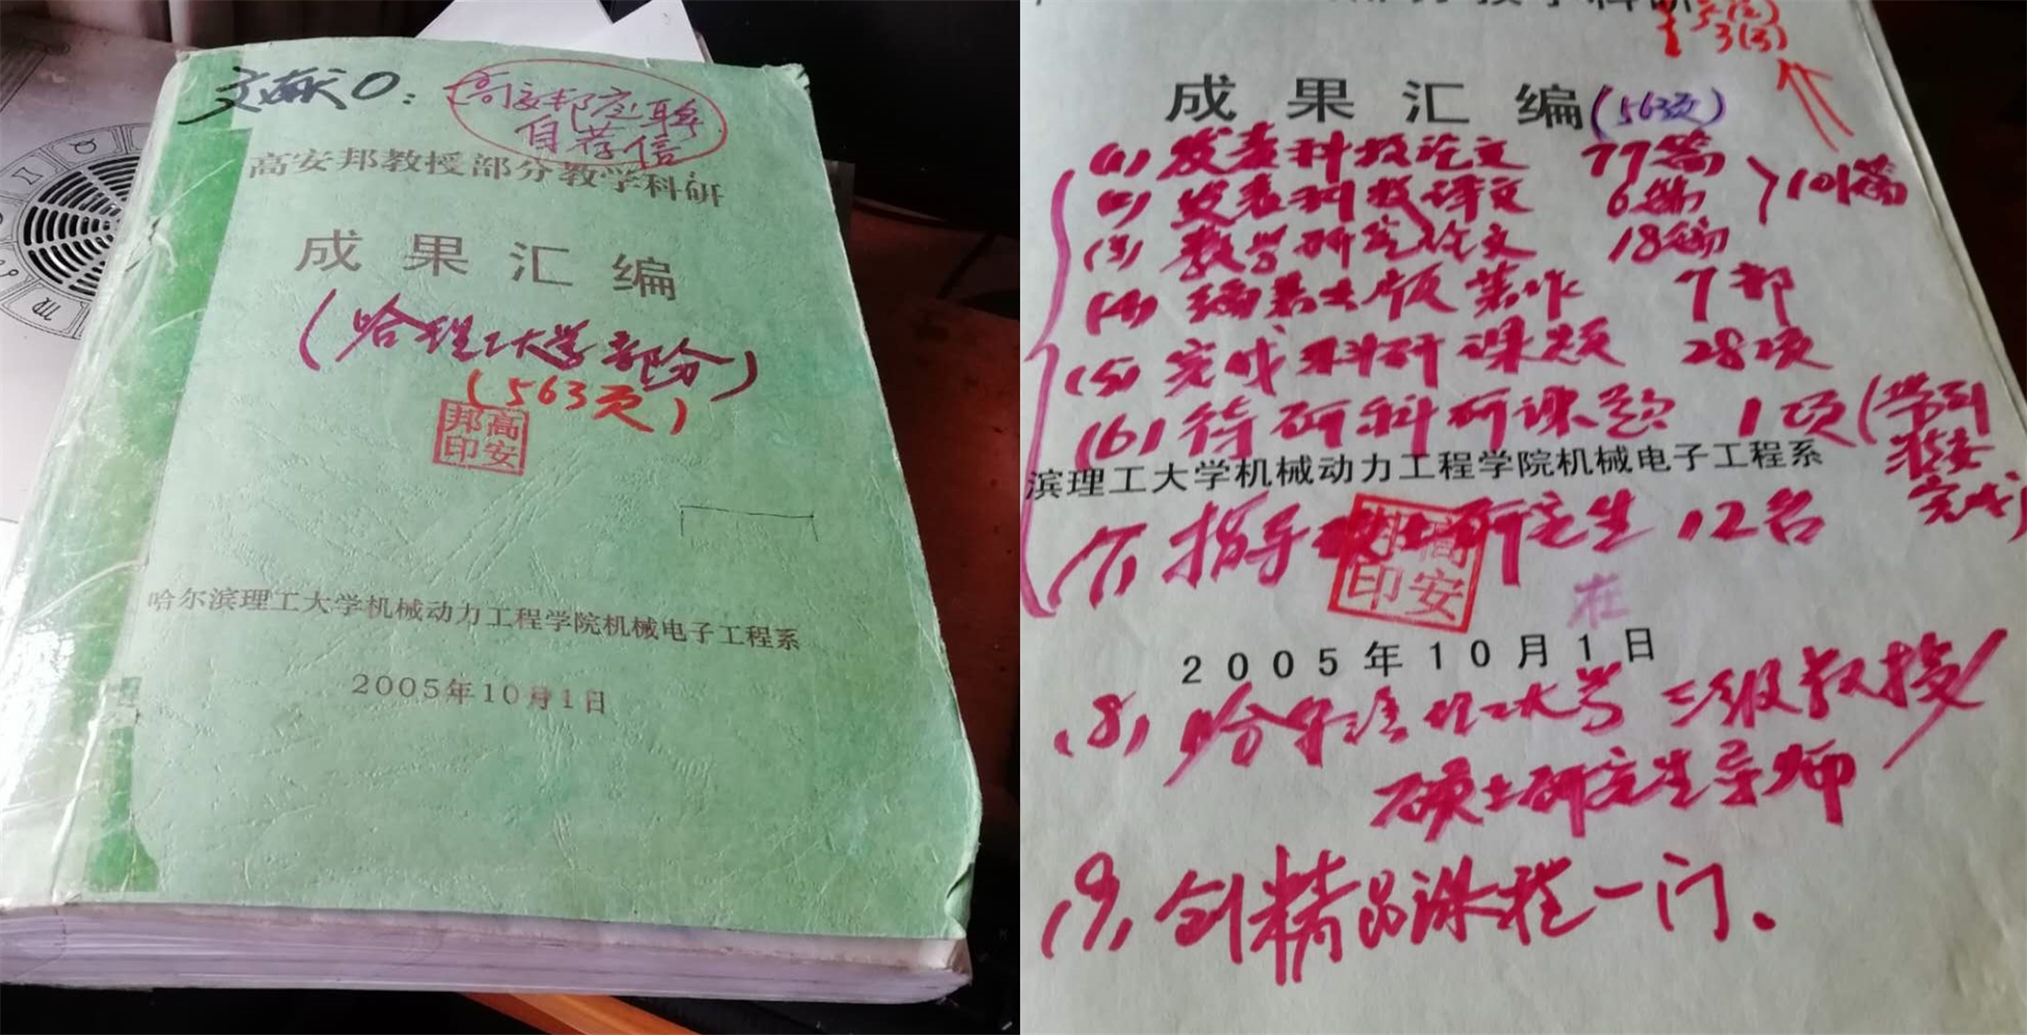 文献0：
高安邦应聘
自荐信
高安邦教授部分教学科研
成果汇编
(哈理工大学部分)
(563页)
邦高
印安
哈尔滨理工大学机械动力工程学院机械电子工程系
2005年10月1日
3(3)
成果汇编(563页)
(1) 发表科技论文 77篇
(2) 发表科技译文 6篇 }101篇
(3) 教学研究论文 18篇
(4) 编著出版著作 7部
(5) 完成科研课题 28项
(6) 待研科研课题 1项(带到
淮安
完成)
滨理工大学机械动力工程学院机械电子工程系
(7) 指导硕士研究生 12名
邦高
印安
在
2005年10月1日
(8) 哈尔滨理工大学三级教授/
硕士研究生导师
(9) 创精品课程一门.